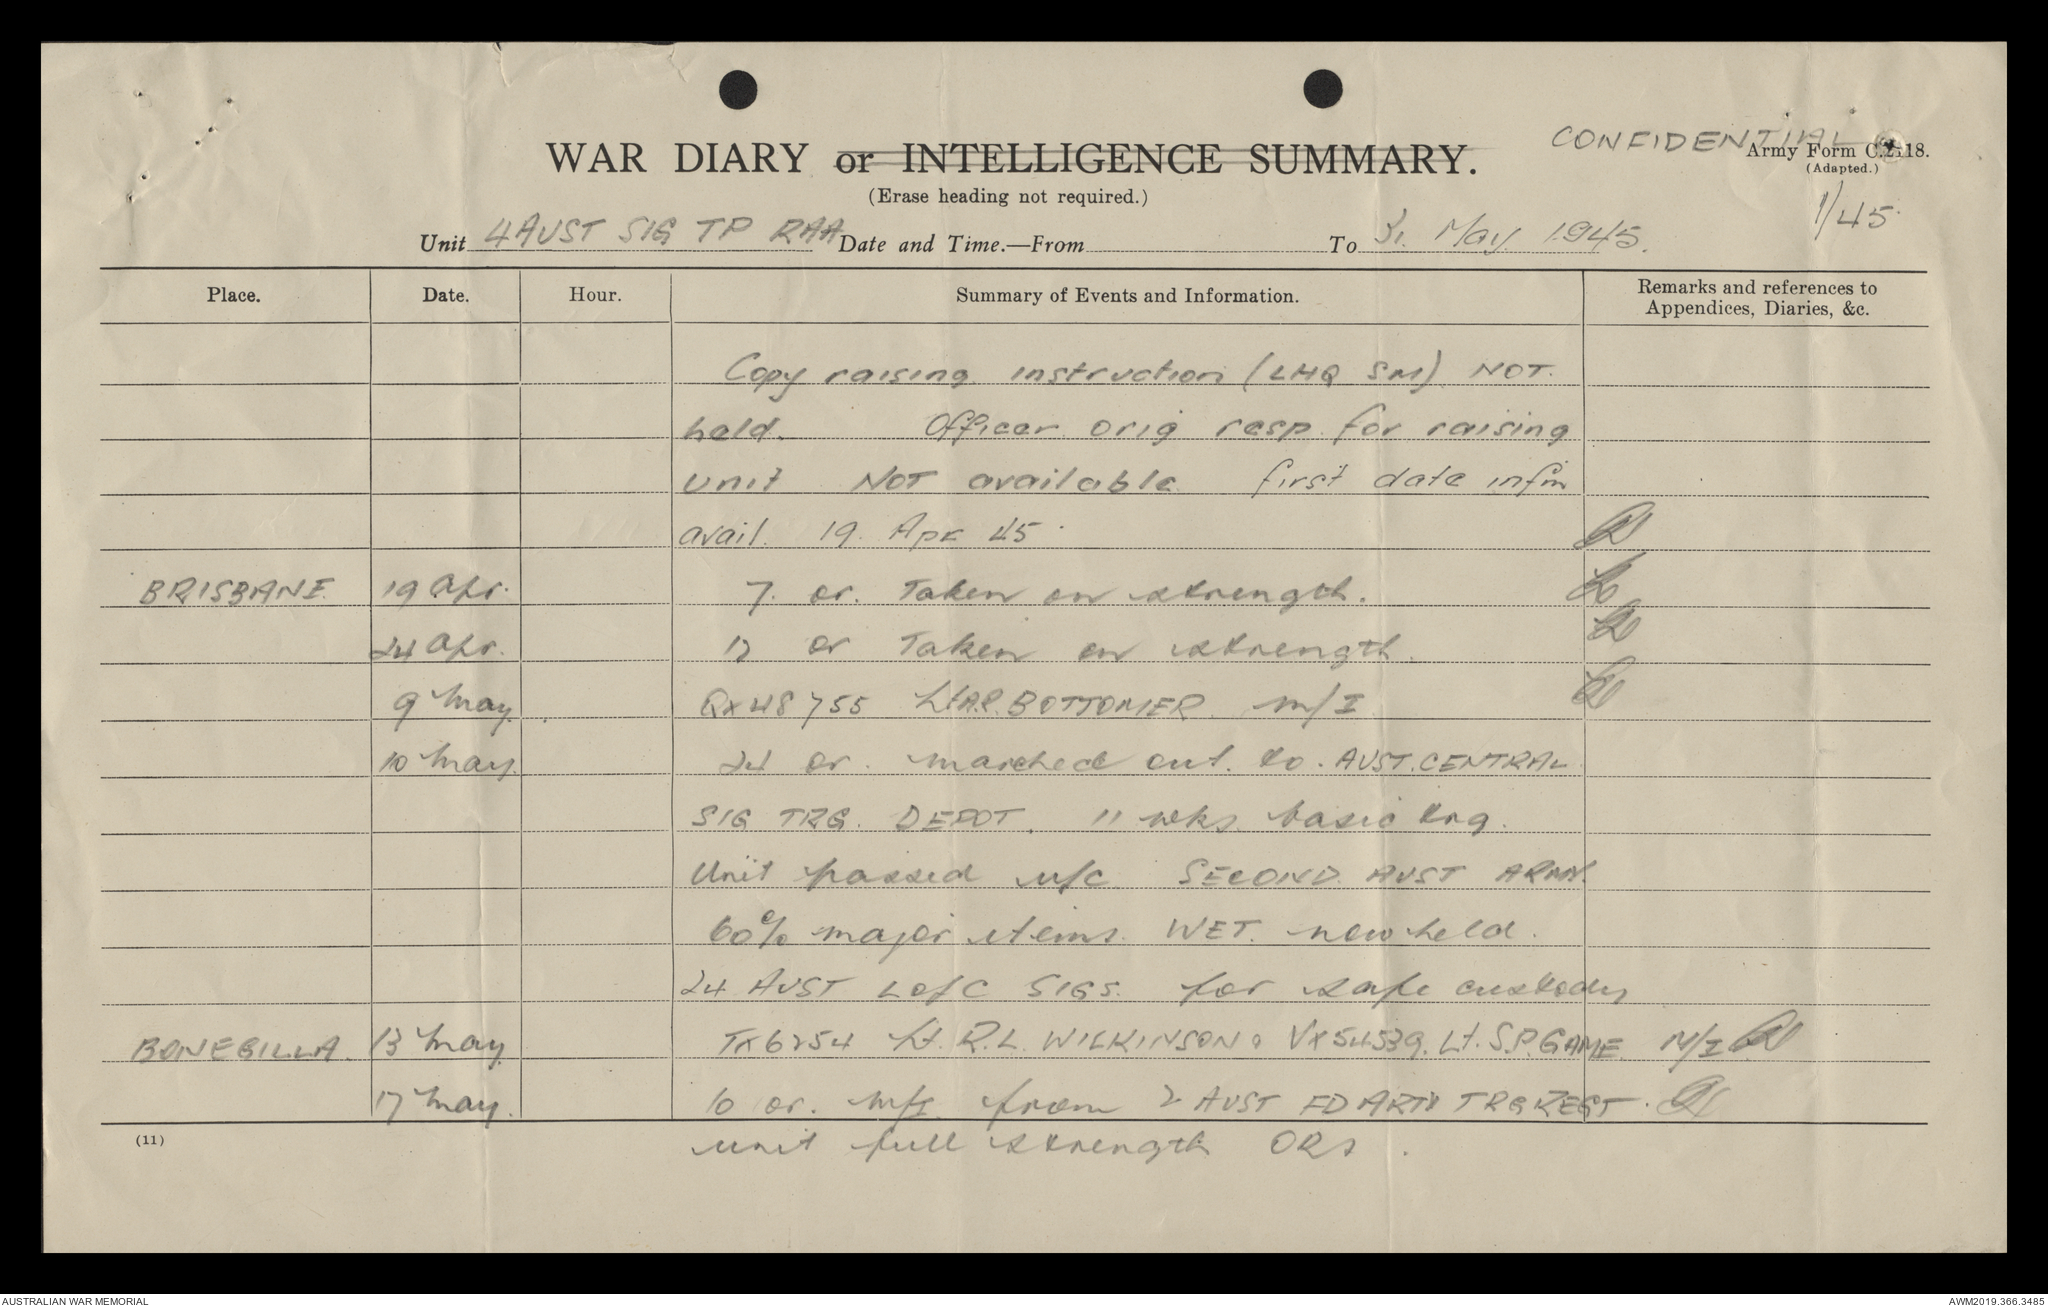 CONFIDENTIAL
WAR DIARY or INTELLIGENCE SUMMARY.
Army Form C.2118.
(Adapted.)
(Erase heading not required.)
1/45
Unit 4 AUST SIG TP RAA Date and Time.—From To 31 May 1945.
Place. Date. Hour. Summary of Events and Information. Remarks and references to Appendices, Diaries, &c.
Copy raising instruction (LHQ SM) NOT
held. Officer orig resp for raising
unit NOT available first date infm
avail. 19 Apr 45.
BRISBANE 19 Apr. 7. or. Taken on strength.
24 Apr. 17 or Taken on strength.
9 May. QX48755 Lt A.R. BOTTOMER M/I
10 May. 24 or. marched out to. AUST. CENTRAL
SIG TRG. DEPOT. 11 wks basic trg.
Unit passed u/c SECOND AUST ARMY.
60% major items. WET. now held.
24 AUST L of C SIGS. for safe custody
BONEGILLA. 13 May TX6254 Lt. R.L. WILKINSON & VX54539. Lt. S.P. GAME M/I
17 May. 10 or. M/I from 2 AUST FD ARTY TRG REGT.
(11)
unit full strength ORs.
AUSTRALIAN WAR MEMORIAL
AWM2019.366.3485